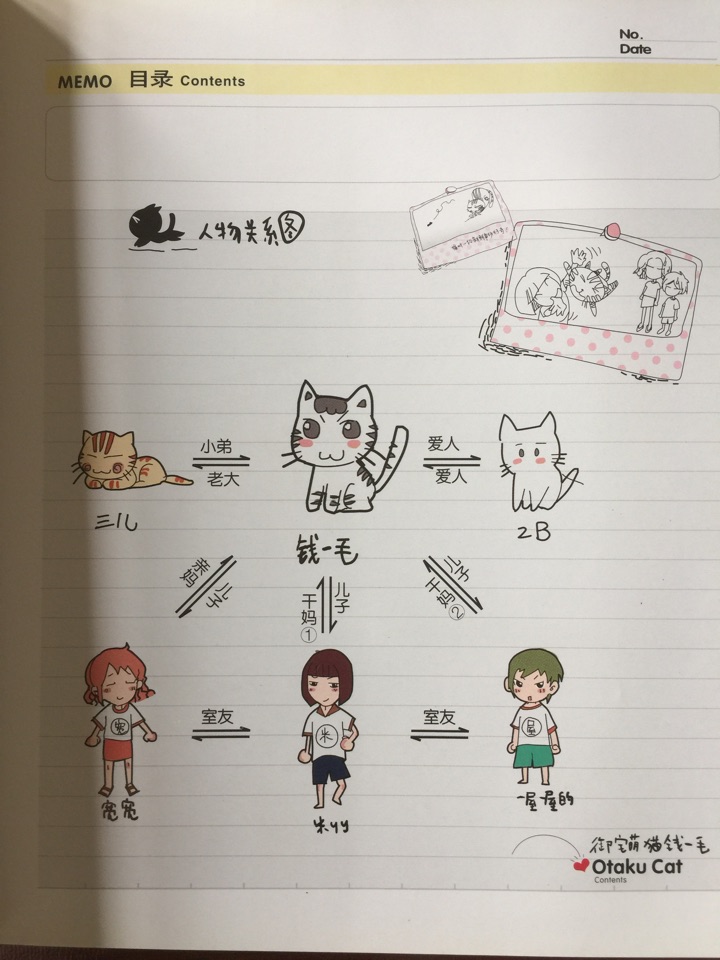 No.
Date
MEMO 目录 Contents
人物关系图
小弟
老大
爱人
爱人
三儿
钱一毛
2B
亲妈
儿子
干妈①
儿子
儿子
干妈②
宽
米
屋
室友
室友
宽宽
米yy
一屋屋的
御宅萌猫钱一毛
Otaku Cat
Contents